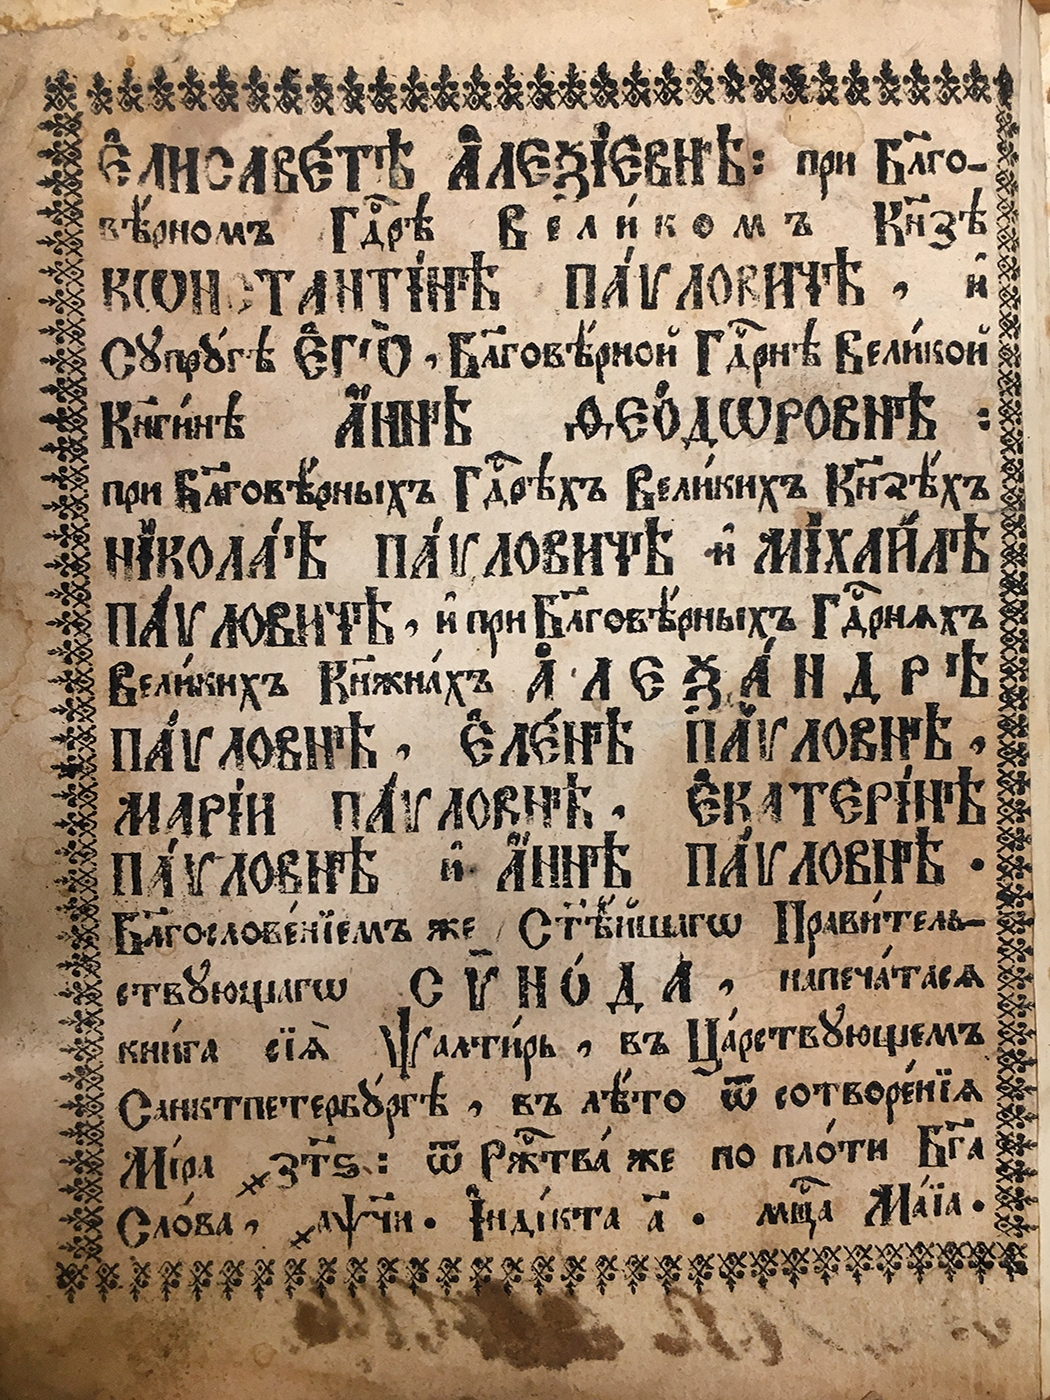 Е҆лисаве́тѣ А҆леѯі́евнѣ: при Бл҃го-
вѣ́рномъ Гдⷭ҇рѣ Вели́комъ Кн҃зѣ
Кѡнстанті́нѣ Па́ѵловичѣ, и҆
Сꙋпрꙋ́гѣ Е҆гѡ̀, Бл҃говѣ́рной Гдⷭ҇рнѣ Вели́кой
Кн҃ги́нѣ А҆́ннѣ Ѳео́дѡровнѣ :
при Бл҃говѣ́рныхъ Гдⷭ҇рѣхъ Вели́кихъ Кн҃зѣ́хъ
Нїкола́ѣ Па́ѵловичѣ и҆ Міха́йлѣ
Па́ѵловичѣ, и҆ при Бл҃говѣ́рныхъ Гдⷭ҇рнѧхъ
Вели́кихъ Кн҃жна́хъ А҆леѯа́ндрѣ
Па́ѵловнѣ, Е҆ле́нѣ Па́ѵловнѣ,
Марі́и Па́ѵловнѣ, Е҆катері́нѣ
Па́ѵловнѣ и҆ А҆́ннѣ Па́ѵловнѣ.
Бл҃гослове́нїемъ же Ст҃ѣ́йшагѡ Прави́тель-
ствꙋющагѡ Сѵно́да, напеча́тасѧ
кни́га сїѧ̀ Ѱалти́рь, въ Ца́рствꙋющемъ
Санктпетербꙋ́ргѣ, въ лѣ́то ѿ сотворе́нїѧ
Мі́ра ҂зт҃ѕ: ѿ Ржⷭ҇тва́ же по пло́ти Бг҃а
Сло́ва, ҂аѱч҃и. І҆ндікта а҃. мцⷭ҇а Ма́їа.